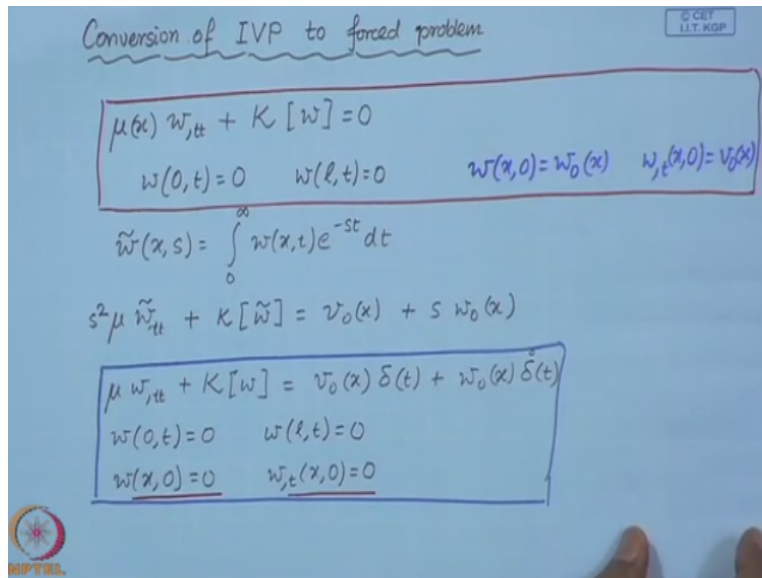 © CET
I.I.T. KGP
Conversion of IVP to forced problem
μ(x) w,tt + K [w] = 0
w(0,t) = 0 w(l,t) = 0 w(x,0) = w₀(x) w,t(x,0) = v₀(x)
w̃(x,s) = ∫₀^∞ w(x,t) e^{-st} dt
s² μ w̃,tt + K[w̃] = v₀(x) + s w₀(x)
μ w,tt + K[w] = v₀(x) δ(t) + w₀(x) δ̇(t)
w(0,t) = 0 w(l,t) = 0
w(x,0) = 0 w,t(x,0) = 0
NPTEL